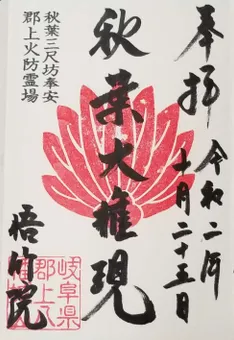 奉拝
令和二年
十月二十三日
秋葉大権現
秋葉三尺坊奉安
郡上火防霊場
悟竹院
岐阜県
郡上八